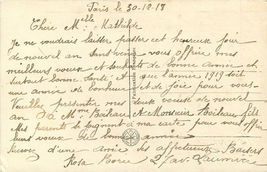 Paris le 30.12.18
Chère Mlle Mathilde
Je ne voudrais laisser passer cet heureux jour
de nouvel an sans venir vous offrir mes
meilleurs voeux et souhaits de bonne année et
surtout bonne Santé et que l'année 1919 soit
une année de bonheur et de joie pour vous.
Veuillez présenter mes voeux de nouvel
an à Mme Boileau et Monsieur Boileau fils
Mes parents se joignent à ma carte pour vous offrir
leurs voeux de bonne année
d'une amie affectueux Baisers
Rosa